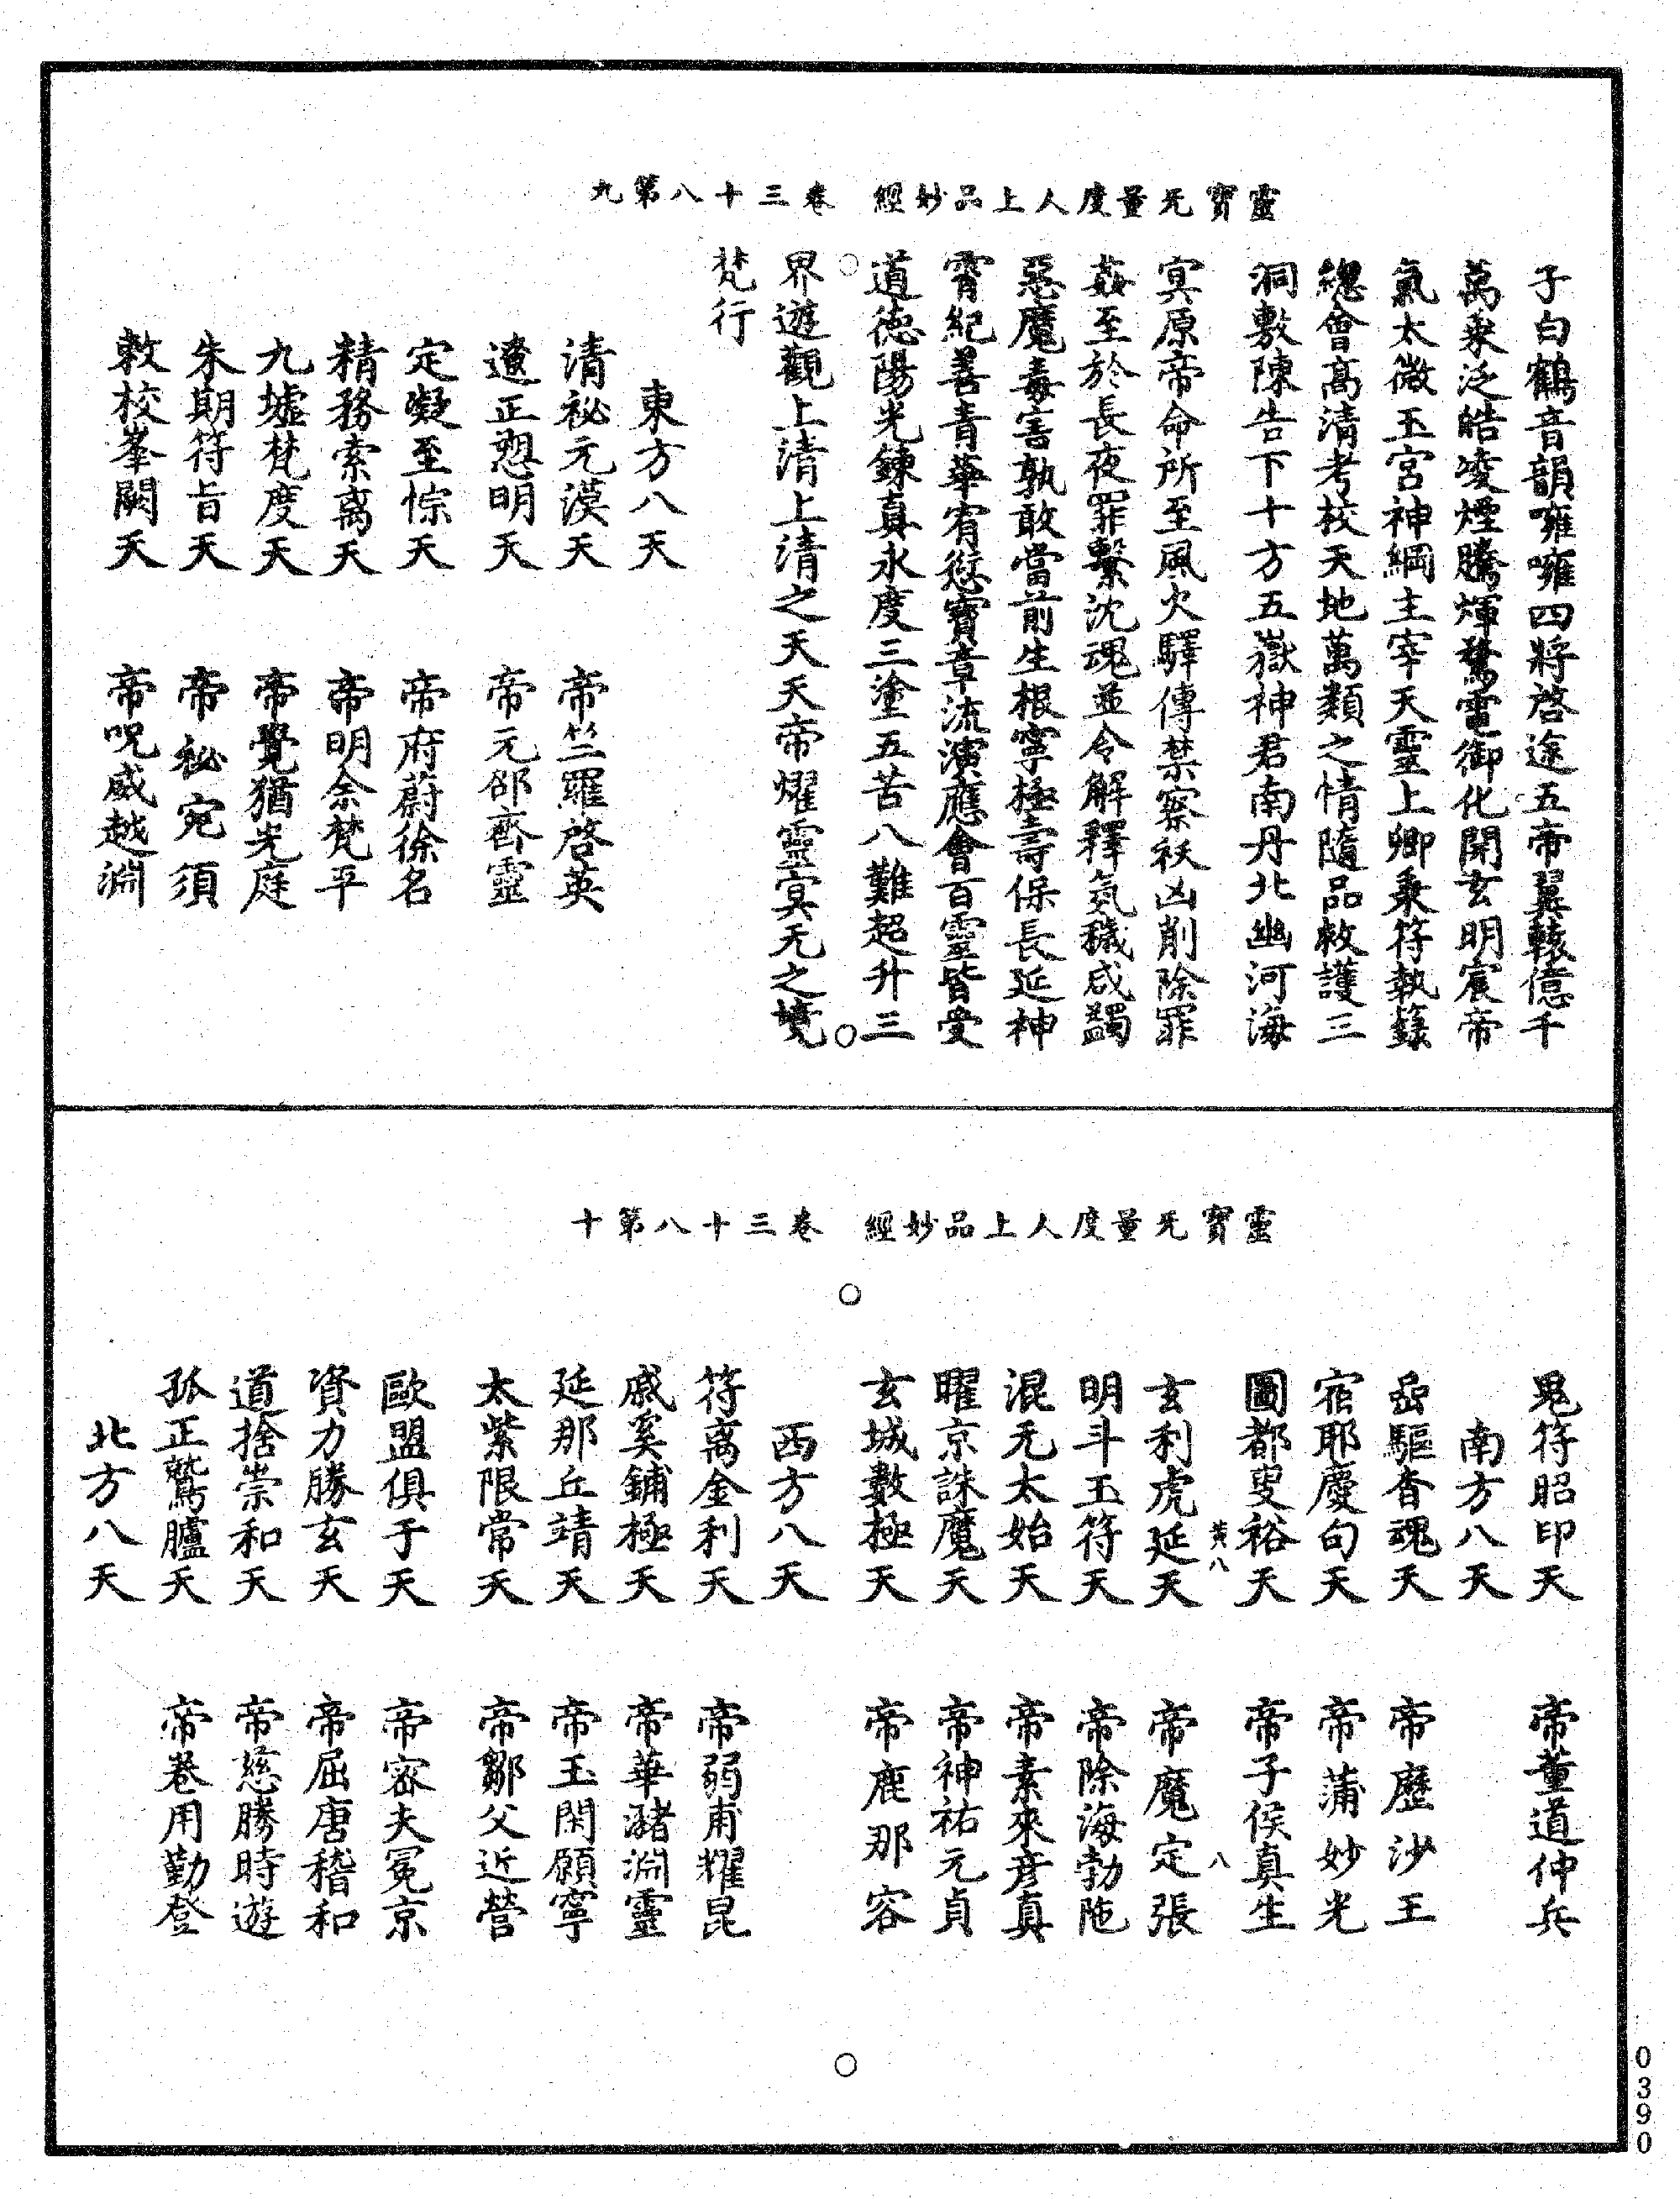 靈寶无量度人上品妙經 卷三十八第九
子白鶴音韻嗈嗈四將啓途五帝翼轅億千
萬乘泛皓凌煙騰煇驁電御化開玄明宸帝
氣太微玉宮神綱主宰天靈上卿乘符執籙
總會高清考校天地萬類之情隨品敕護三
洞敷陳告下十方五嶽神君南丹北幽河海
冥原帝命所至風火驛傳禁察祅凶削除罪
姦至於長夜罪繫沈魂並令解釋氣穢咸蠲
惡魔毒害孰敢當前生根寧極壽保長延神
霄紀善青華宥愆寶章流演應會百靈皆受
道德陽光鍊真永度三塗五苦八難超升三
界遊觀上清上清之天天帝燿靈冥无之境
梵行
東方八天
清祕元漠天 帝竺羅啓英
遼正愬明天 帝元郤齊靈
定凝至悰天 帝府蔚徐名
精務索离天 帝明余梵平
九墟梵度天 帝覺猶光庭
朱期符旨天 帝祕宛須
敕校峯闕天 帝呪威越淵
靈寶无量度人上品妙經 卷三十八第十
鬼符昭印天 帝董道仲兵
南方八天
岳驅杳魂天 帝歷沙王
宿耶慶句天 帝蒲妙光
圖都叟裕天 帝子侯真生
黃八 八
玄利虎延天 帝魔定張
明斗玉符天 帝除海勃陁
混元太始天 帝素來彥真
曜京誅魔天 帝神祐元貞
玄城數極天 帝鹿那容
西方八天
符离金利天 帝弱甫耀昆
戚奚鋪極天 帝華瀦淵靈
延那丘靖天 帝玉閑願寧
太紫限常天 帝鄒父近營
歐盟俱于天 帝密夫冕京
資力勝玄天 帝屈唐稽和
道捨崇和天 帝慈勝時遊
孤正鷲臚天 帝卷用勤登
北方八天
0390